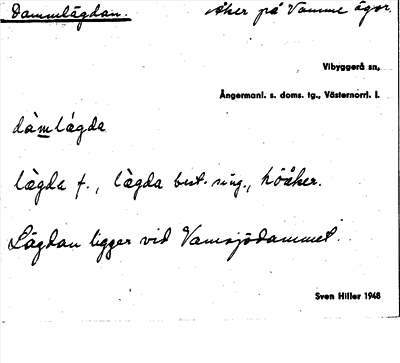 Dammlägdan. Åker på Vamme ägor.
Vibyggerå sn,
Ångermanl. s. doms. tg., Västernorrl. l.
dàmlágda
lägda f., làgda best. sing., höåker.
Lägdan ligger vid Vamsjödammet.
Sven Hiller 1948